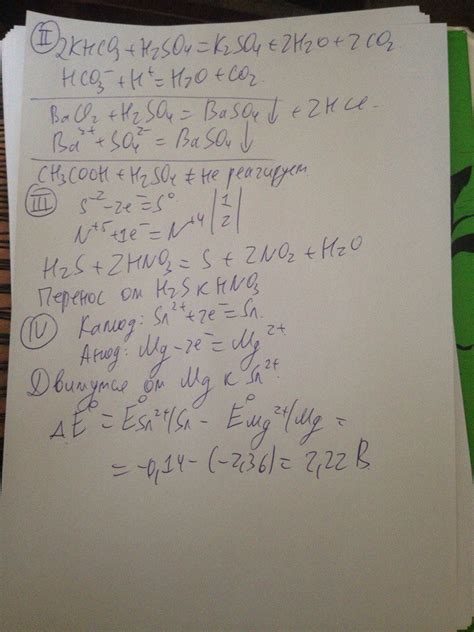 II 2KHCO3 + H2SO4 = K2SO4 + 2H2O + 2CO2
HCO3⁻ + H⁺ = H2O + CO2.
BaCl2 + H2SO4 = BaSO4↓ + 2HCl.
Ba²⁺ + SO4²⁻ = BaSO4↓
CH3COOH + H2SO4 ≠ не реагирует
III S⁻² - 2e⁻ = S⁰ | 1
N⁺⁵ + 1e⁻ = N⁺⁴ | 2
H2S + 2HNO3 = S + 2NO2 + H2O
Перенос от H2S к HNO3
IV Катод: Sn²⁺ + 2e⁻ = Sn.
Анод: Mg - 2e⁻ = Mg²⁺
Движутся от Mg к Sn²⁺.
ΔE⁰ = E⁰Sn²⁺/Sn - E⁰Mg²⁺/Mg =
= -0,14 - (-2,36) = 2,22 В